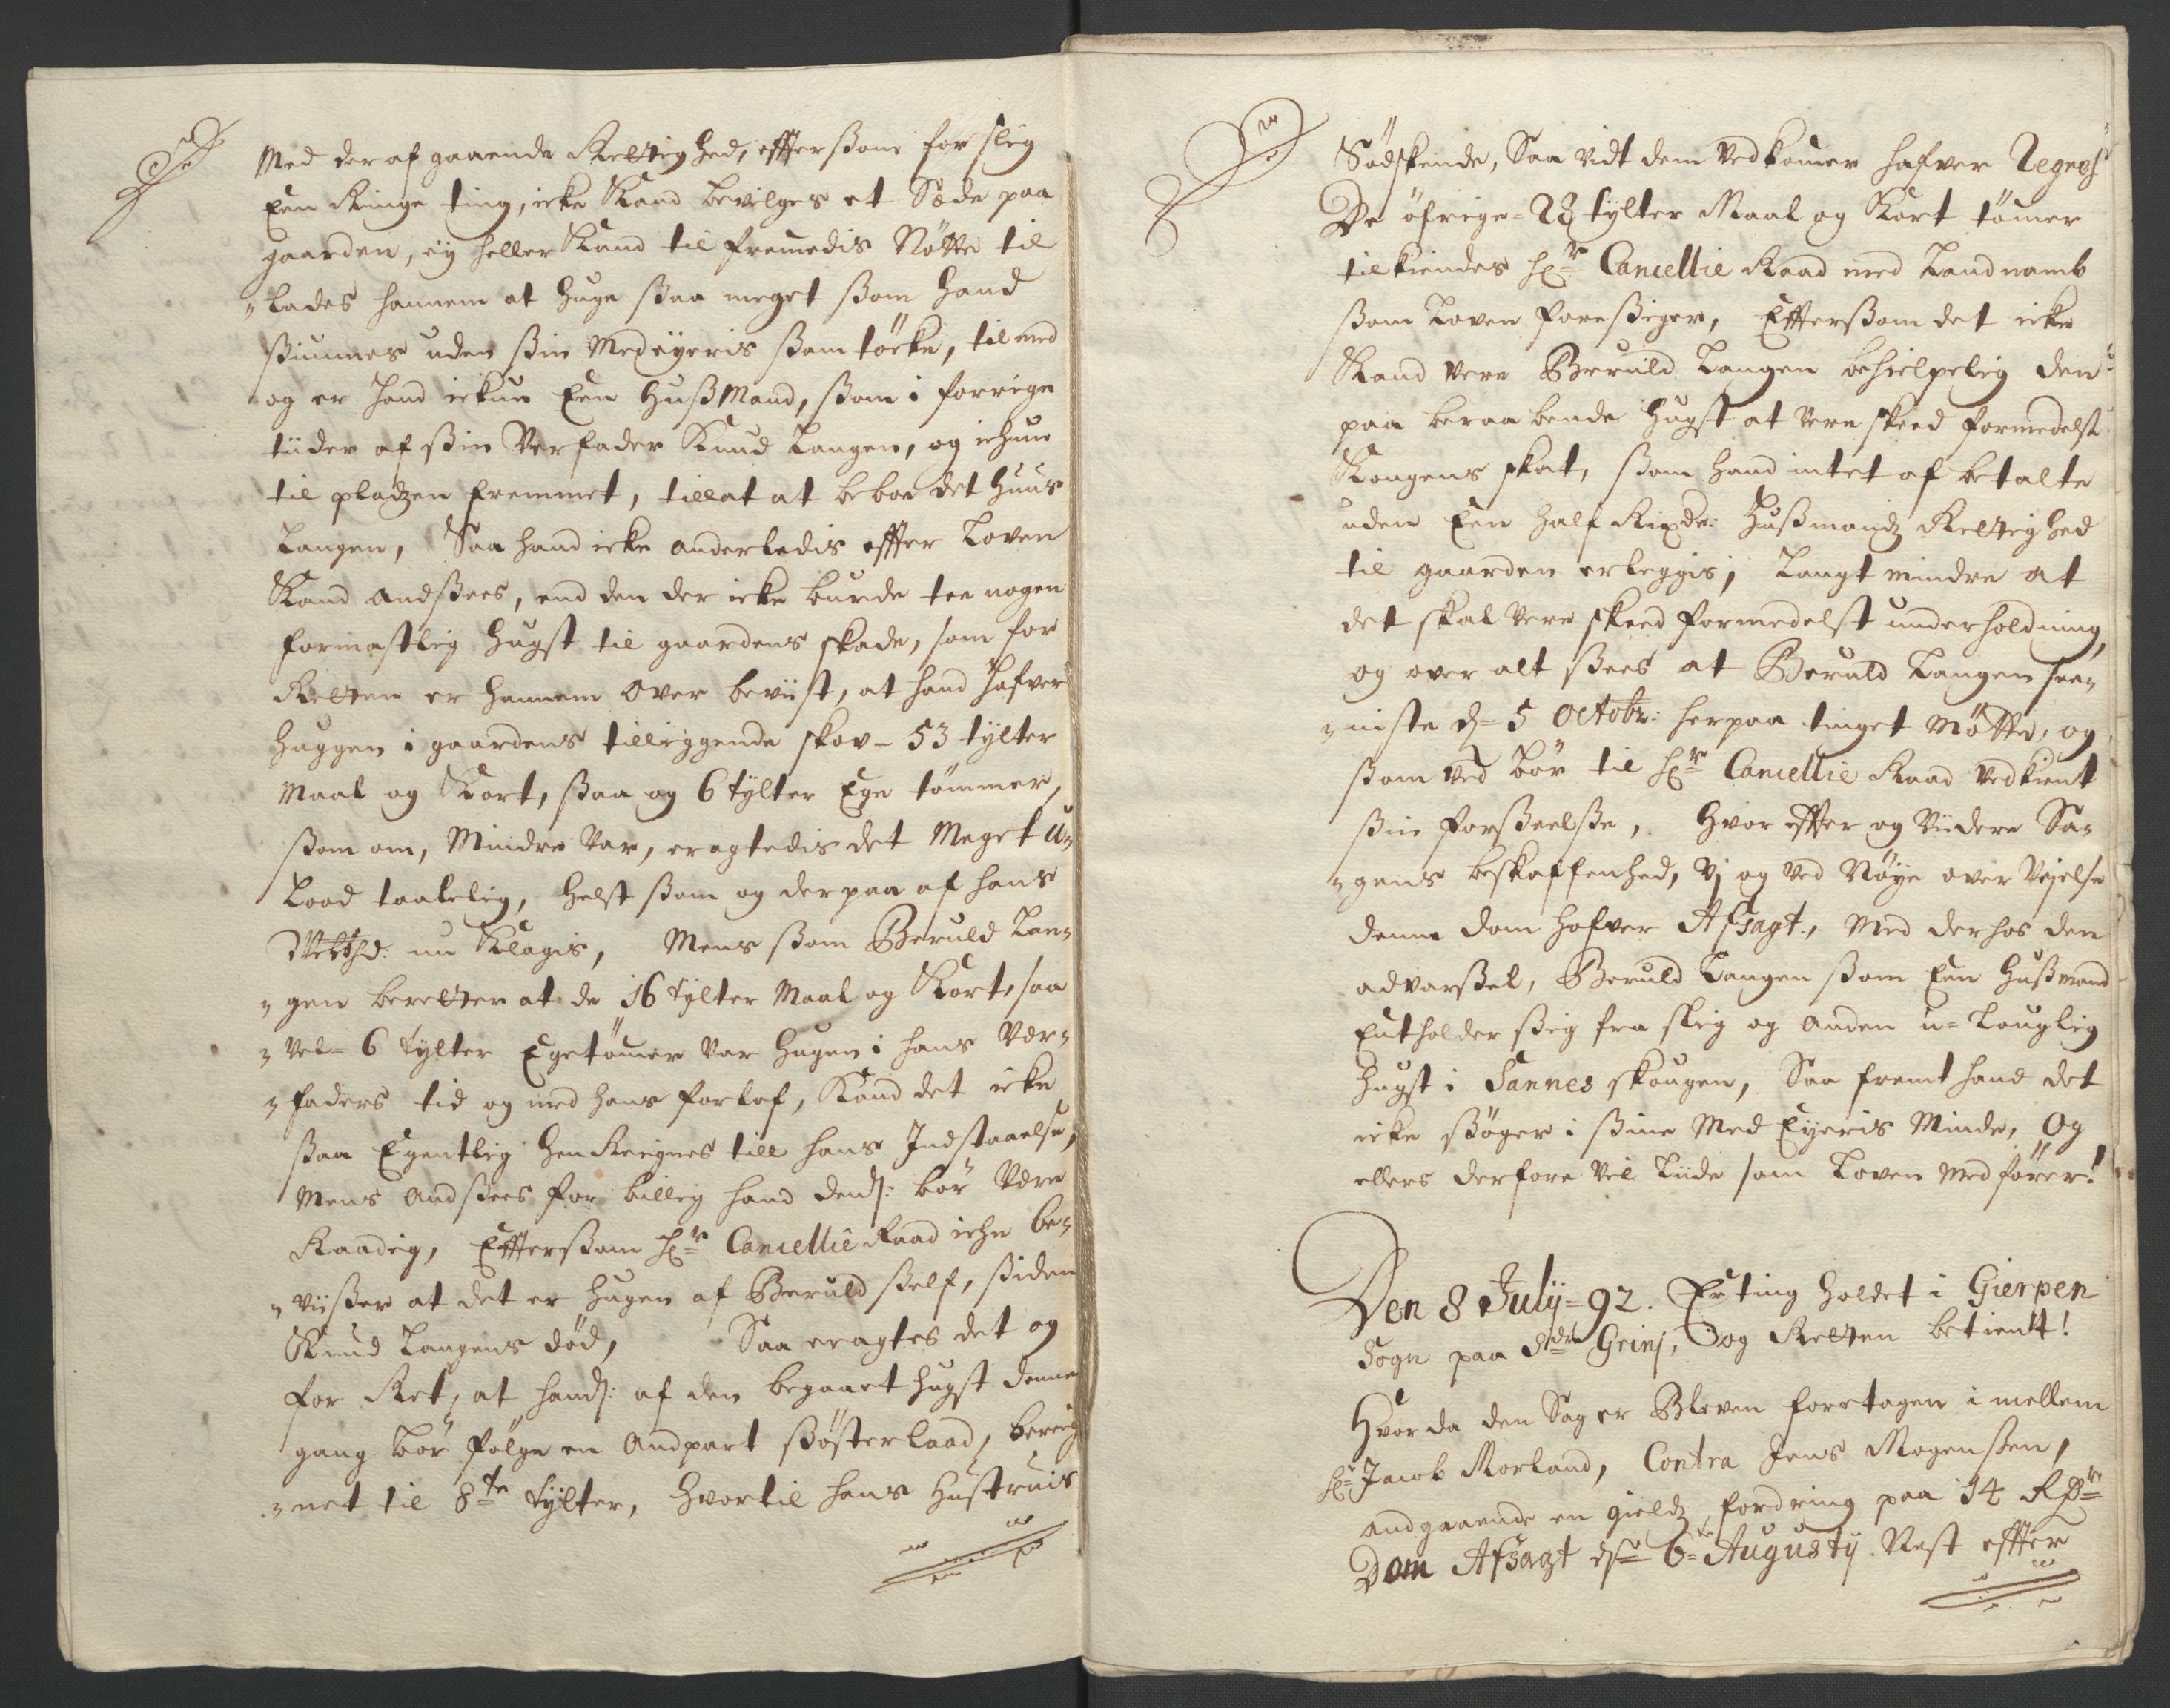 Med der af gaaende Rettighed, effterßom for slig
Een Ringe ting, icke Kand bevilges et Sæde paa
gaarden, ej heller Kand til fremmedis Nøtte til
lades hannem at Huge ßaa meget ßom Hand
ßiunnes uden ßin Medeyeris ßamtöcke, til med
og er Hand ickun Een HußMand, ßom i forrige
tiider af ßin Verfader Knud Langen, og ichun
til pladzen fremmet, tillat at beboe det Huus
Langen, Saa hand icke anderledis effter Loven
Kand andßees, end den der icke burde tee nogen
formastlig Hugst til gaardens skade, som for
Retten er hannem over beviist, at hand Hafver
Huggen i gaardens tilliggende skov - 53 tylter
Maal og Kort, ßaa og 6 tylter Ege tömmer,
ßom om, Mindre Var, eragtedis det Meget U-
Load taalelig, Helst ßom og der paa af hans
nu Klagis, Mens ßom Beruld Lan-
gen beretter at de 16 tylter Maal og Kort, saa
vel - 6 tylter Egetömer var Hugen i hans Vær-
faders tid og med hans forlof, Kand det icke
ßaa Egentlig Hen Reignes till hans Indstaaelse,
Mens andßees for billig hand dends: bör Være
Raadig, Effterßom Hr: Cancellie Raad ichе be-
viißer at det er Hugen af Beruld ßelf, ßiden
Knud Langens död, Saa eragtes det og
for Ret, at hands: af den begaaet Hugst denne
gang bör fölge en Andpart ßösterlaad, bereig
net til 8te tylter, Hvortil hans Hustruis
Södskende, Saa vidt dem vedkomer hafver Regres
De öfrige - 28 tylter Maal og Kort tömer
tilkiendes Hr: Cancellie Raad med Landnamb
ßom Loven foreßiger, Effterßom det icke
Kand Vere Beruld Langen behielpelig den
paa beraabende Hugst at vere skeed formedelst
Kongens skat, ßom Hand intet af betalte
uden Een half Rixdr: Hußmandz Rettighed
til gaarden erleggis, Langt mindre at
det skal Vere skeed formedelst underholdning,
og over alt ßees at Beruld Langen see-
niste d= 5 Octobr: her paa tinget Mötte, og
ßom ved bör til Hr: Cancellie Raad Vedkient
ßin forßeelße, Hvor effter og Viidere Sa-
gens beskaffenhed, Vj og ved Nöye over Vejelse
denne Dom Hafver Afsagt, Med derhos den
advarßel, Beruld Langen ßom Een Hußmand
Entholder ßig fra slig og Anden u-Louglig
Hugst i Sannes skougen, Saa fremt hand det
icke ßöger i ßine Med Eyeris Minde, Og
ellers derfore Vil Liide som Loven Medförer!
Den 8 July = 92. Er ting Holdet i Gierpen
Sogn paa Grini, og Retten betient!
Hvor da den Sag er Bleven foretagen i mellem
Hr: Jacob Morland, Contra Jens Mogenßen,
andgaaende en gieldz fordring paa 14 Rdr
Dom Afsagt dn 6te Augusty. Nest effter